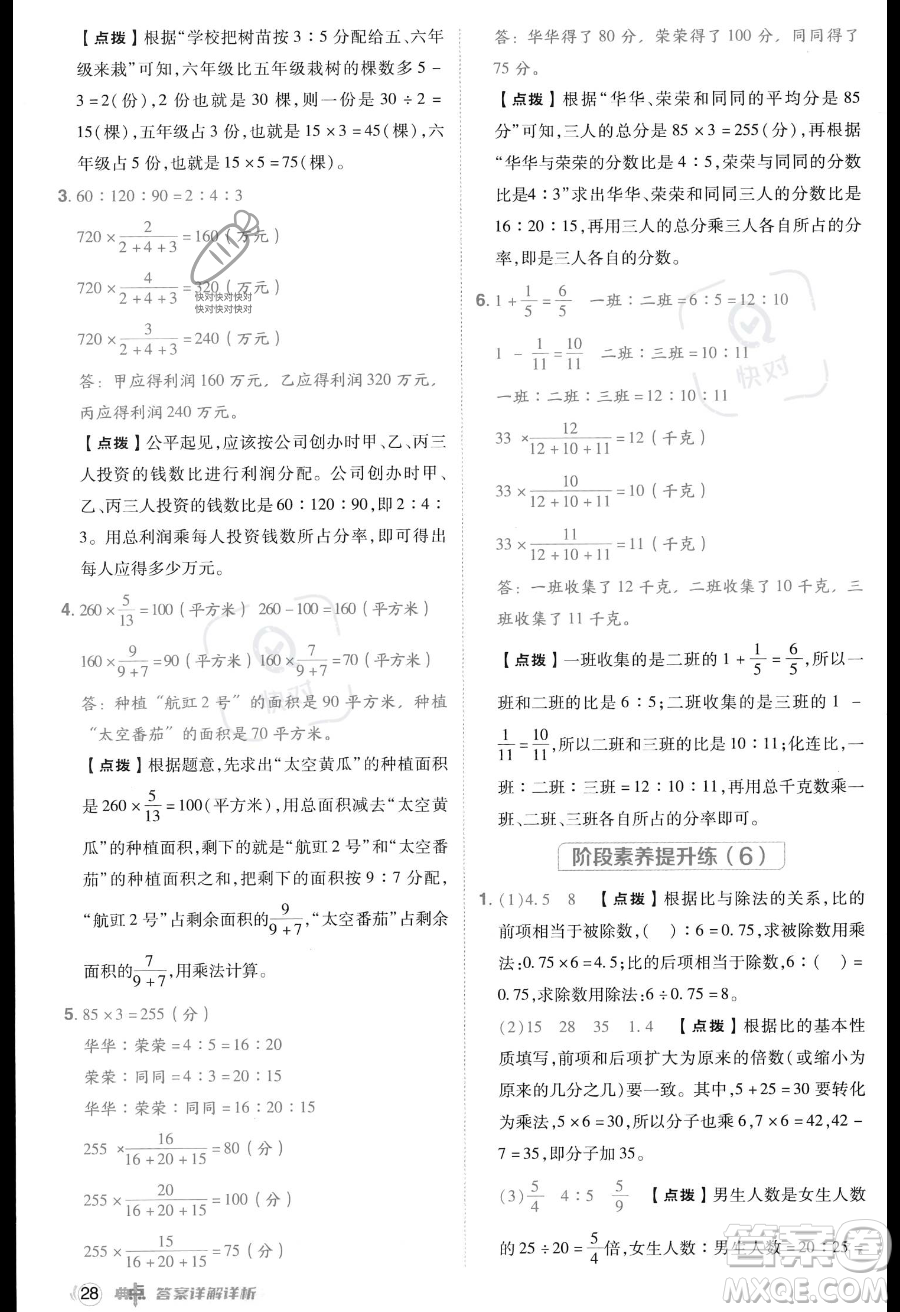 【点拨】根据“学校把树苗按3:5分配给五、六年
级来栽”可知，六年级比五年级栽树的棵数多5-
3=2(份)，2份也就是30棵，则一份是30÷2=
15(棵)，五年级占3份，也就是15×3=45(棵)，六
年级占5份，也就是15×5=75(棵)。
3. 60:120:90=2:4:3
720×2/(2+4+3)=160(万元)
720×4/(2+4+3)=320(万元)
快对快对快对
快对快对快对
720×3/(2+4+3)=240(万元)
答：甲应得利润160万元，乙应得利润320万元，
丙应得利润240万元。
【点拨】公平起见，应该按公司创办时甲、乙、丙三
人投资的钱数比进行利润分配。公司创办时甲、
乙、丙三人投资的钱数比是60:120:90，即2:4:
3。用总利润乘每人投资钱数所占分率，即可得出
每人应得多少万元。
4. 260×5/13=100(平方米) 260-100=160(平方米)
160×9/(9+7)=90(平方米) 160×7/(9+7)=70(平方米)
答：种植“航豇2号”的面积是90平方米，种植
“太空番茄”的面积是70平方米。
【点拨】根据题意，先求出“太空黄瓜”的种植面积
是260×5/13=100(平方米)，用总面积减去“太空黄
瓜”的种植面积，剩下的就是“航豇2号”和“太空番
茄”的种植面积之和。把剩下的面积按照9:7分配，
“航豇2号”占剩余面积的9/(9+7)，“太空番茄”占剩余
面积的7/(9+7)，用乘法计算。
5. 85×3=255(分)
华华:荣荣=4:5=16:20
荣荣:同同=4:3=20:15
华华:荣荣:同同=16:20:15
255×16/(16+20+15)=80(分)
255×20/(16+20+15)=100(分)
255×15/(16+20+15)=75(分)
28 典点 答案详解详析
答：华华得了80分，荣荣得了100分，同同得了
75分。
【点拨】根据“华华、荣荣和同同的平均分是85
分”可知，三人的总分是85×3=255(分)，再根据
“华华与荣荣的分数比是4:5，荣荣与同同的分数
比是4:3”求出华华、荣荣和同同三人的分数比是
16:20:15，再用三人的总分乘三人各自所占的分
率，即是三人各自的分数。
6. 1+1/5=6/5 一班:二班=6:5=12:10
1-1/11=10/11 二班:三班=10:11
一班:二班:三班=12:10:11
33×12/(12+10+11)=12(千克)
33×10/(12+10+11)=10(千克)
33×11/(12+10+11)=11(千克)
答：一班收集了12千克，二班收集了10千克，三
班收集了11千克。
【点拨】一班收集的是二班的1+1/5=6/5，所以一
班和二班的比是6:5；二班收集的是三班的1-
1/11=10/11，所以二班和三班的比是10:11；化连比，一
班:二班:三班=12:10:11，再用总千克数乘一
班、二班、三班各自所占的分率即可。
阶段素养提升练(6)
1. (1)4.5 8 【点拨】根据比与除法的关系，比的
前项相当于被除数，( ):6=0.75，求被除数用乘
法：0.75×6=4.5；比的后项相当于除数，6:( )=
0.75，求除数用除法：6÷0.75=8。
(2)15 28 35 1.4 【点拨】根据比的基本性
质填写，前项和后项扩大为原来的倍数(或缩小为
原来的几分之几)要一致。其中，5+25=30要转化
为乘法，5×6=30，所以分子乘6，7×6=42，42-
7=35，所以分子加35。
(3)5/4 4:5 5/9 【点拨】男生人数是女生人数
的25÷20=5/4，女生人数:男生人数=20:25=
快对
快对
答案圈
MXQE.COM